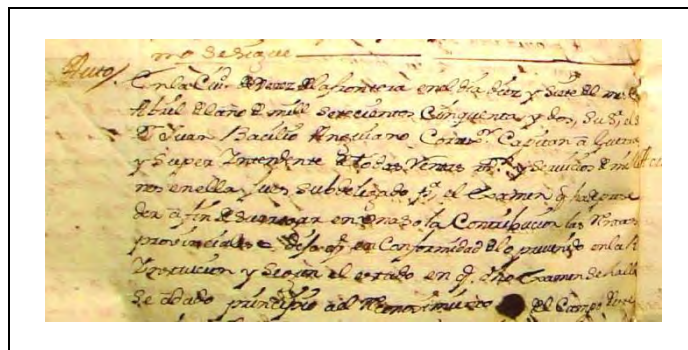 no se sigue
Auto /
En la Ciu. de Xerez de la frontera en el dia diez y siete del mes
Abril del año de mill setecientos Cinquenta y dos, su Sª, el S
D Juan Bacilio Anguiano Correx.or Capitan a Guerra
y Super Intendente de todas Rentas R.s y servicios de mi
nes en ella Juez subdelegado pª, el Examen q ha de proce
der a fin de subrogar en una sola Contribucion las Rentas
provinciales Dijo q en Conformidad de lo prevenido en la R
Instrucion y segun el estado en q. dho Examen se halla
se a dado principio al Reconocimiento el Campo